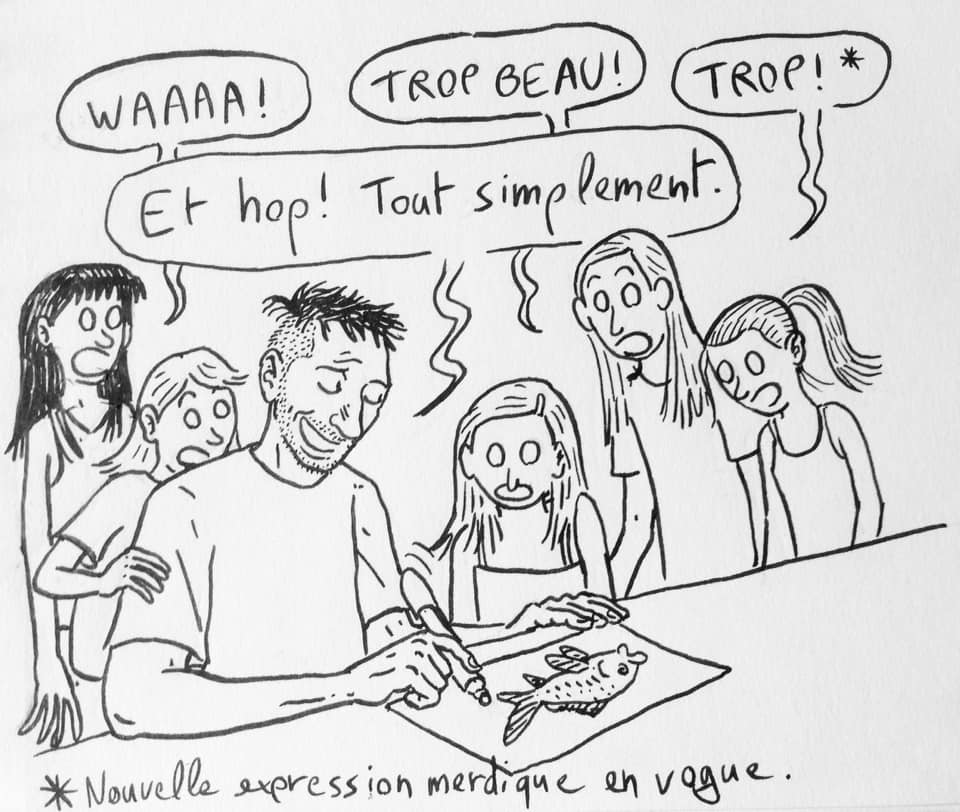 WAAAA!
TROP BEAU!
TROP! *
Et hop! Tout simplement.
* Nouvelle expression merdique en vogue.